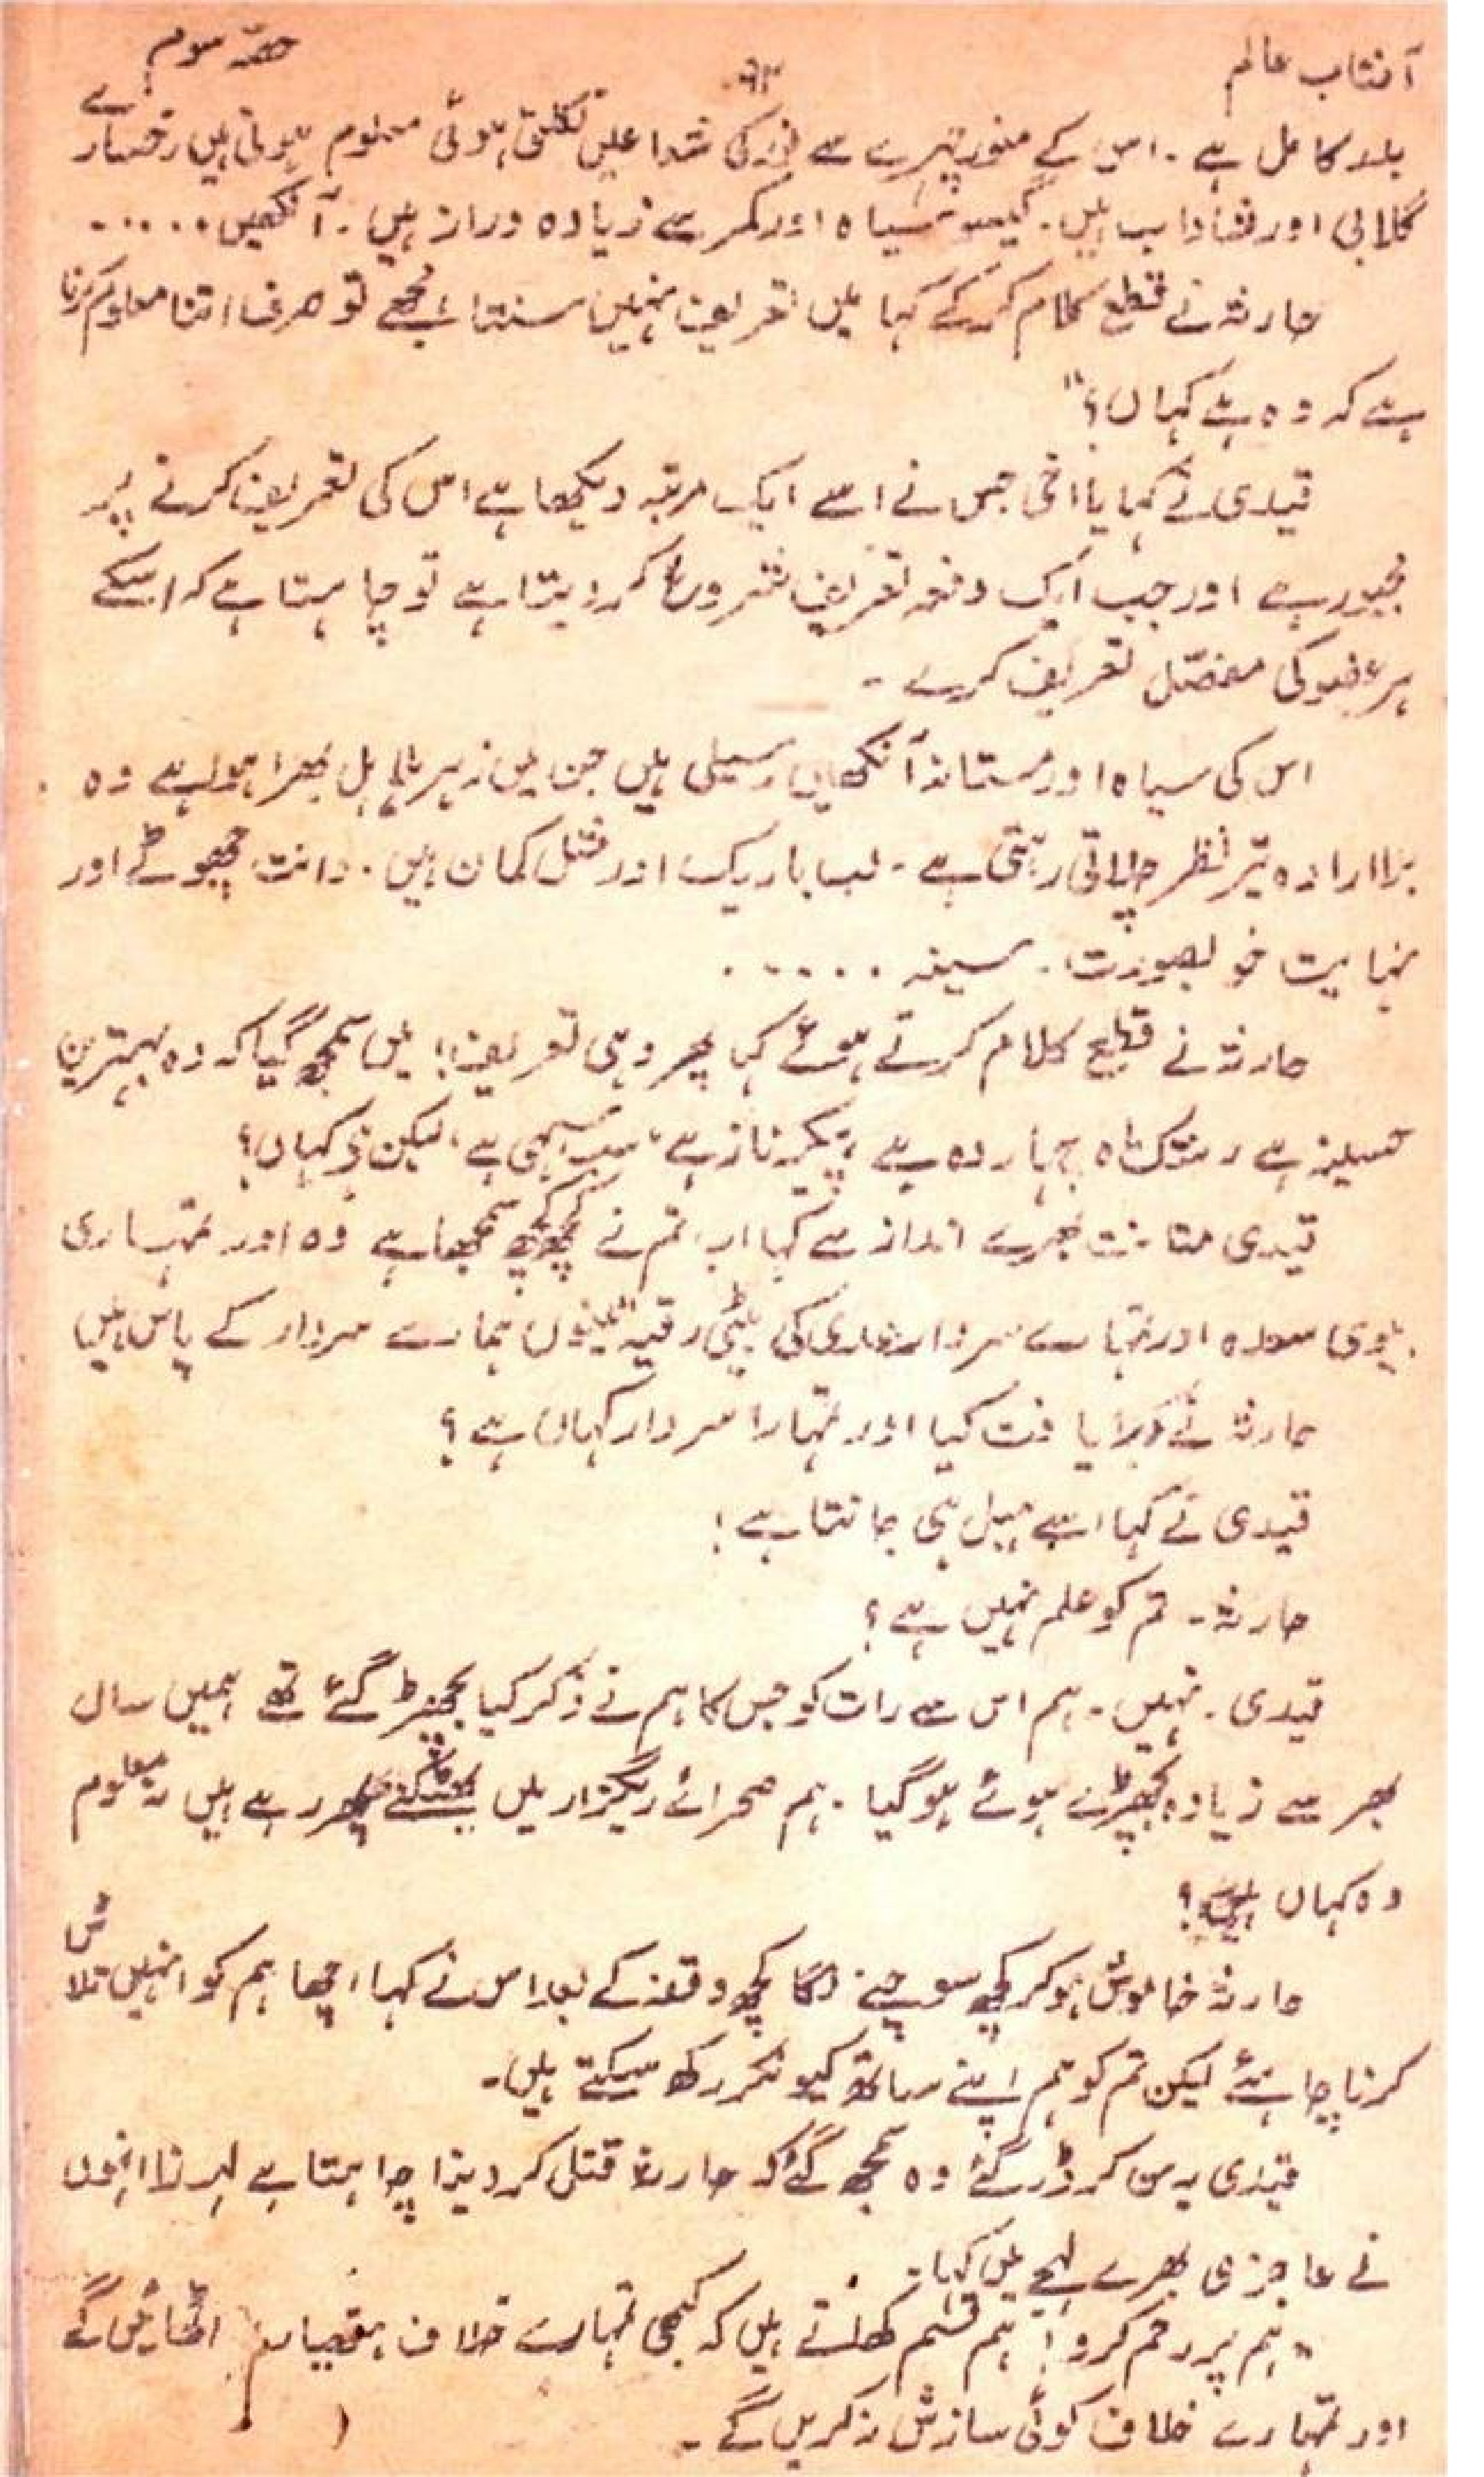 آفتاب عالم
حصّہ سوم
بدر کامل ہے۔ اس کے منور چہرے سے نور کی شعاعیں نکلتی ہوئی معلوم ہوتی ہیں رخسارے
گلابی اور شاداب ہیں۔ گیسو سیاہ اور کمر سے زیادہ دراز ہیں۔ آنکھیں.....
حارثہ نے قطع کلام کرکے کہا میں تعریف نہیں سنتا مجھے تو صرف اتنا معلوم کرنا
ہے کہ وہ ہے کہاں؟"
قیدی نے کہا یا اخی جس نے اسے ایک مرتبہ دیکھا ہے اس کی تعریف کرنے پر
مجبور ہے اور جب ایک دفعہ تعریف شروع کر دیتا ہے تو چاہتا ہے کہ اسکے
ہر عضو کی مفصّل تعریف کرے۔
اس کی سیاہ اور مستانہ آنکھیں رسیلی ہیں جن میں زہر ہلاہل بھرا ہوا ہے وہ
بلا ارادہ تیر نظر چلاتی رہتی ہے۔ لب باریک اور مثل کمان ہیں۔ دانت چھوٹے اور
نہایت خوبصورت۔ سینہ .....
حارثہ نے قطع کلام کرتے ہوئے کہا پھر وہی تعریف! میں سمجھ گیا کہ وہ بہترین
حسینہ ہے رشک ماہ چہاردہ ہے پیکر ناز ہے، سب سہی ہے، لیکن ہے کہاں؟
قیدی متانت بھرے انداز سے کہا اب تم نے کچھ کچھ سمجھا ہے وہ اور تمہاری
بیوی سعدہ اور تمہارے سردار عدی کی بیٹی رقیہ تینوں ہمارے سردار کے پاس ہیں
حارثہ نے دریافت کیا اور تمہارا سردار کہاں ہے؟
قیدی نے کہا اسے ہبل ہی جانتا ہے!
حارثہ۔ تم کو علم نہیں ہے؟
قیدی۔ نہیں۔ ہم اس سے رات کو جس کا ہم نے ذکر کیا بچھڑ گئے تھے ہمیں سال
بھر سے زیادہ بچھڑے ہوئے ہو گیا۔ ہم صحرائے ریگزار میں بھٹکتے پھر رہے ہیں نہ معلوم
وہ کہاں ہیں؟
حارثہ خاموش ہو کر کچھ سوچنے لگا کچھ وقفہ کے بعد اس نے کہا اچھا ہم کو انہیں تلاش
کرنا چاہئے لیکن تم کو ہم اپنے ساتھ کیونکر رکھ سکتے ہیں۔
قیدی یہ سن کر ڈر گئے وہ سمجھ گئے کہ حارثہ قتل کر دینا چاہتا ہے لہذا انہوں
نے عاجزی بھرے لہجے میں کہا۔
"ہم پر رحم کرو! ہم قسم کھاتے ہیں کہ کبھی تمہارے خلاف ہتھیار نہ اٹھائیں گے
اور تمہارے خلاف کوئی سازش نہ کریں گے۔